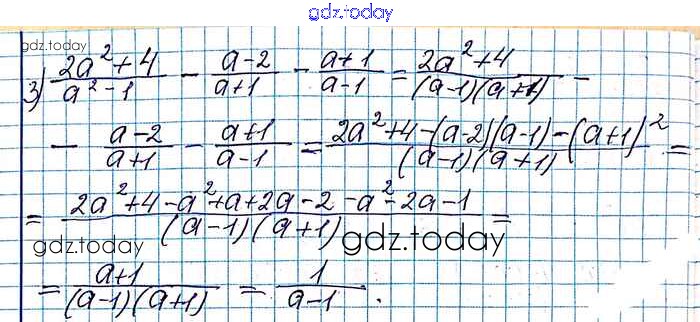 gdz.today
gdz.today
3) (2a²+4)/(a²-1) - (a-2)/(a+1) - (a+1)/(a-1) = (2a²+4)/((a-1)(a+1)) -
- (a-2)/(a+1) - (a+1)/(a-1) = (2a²+4-(a-2)(a-1)-(a+1)²)/((a-1)(a+1)) =
= (2a²+4-a²+a+2a-2-a²-2a-1)/((a-1)(a+1)) =
gdz.today gdz.today
= (a+1)/((a-1)(a+1)) = 1/(a-1).